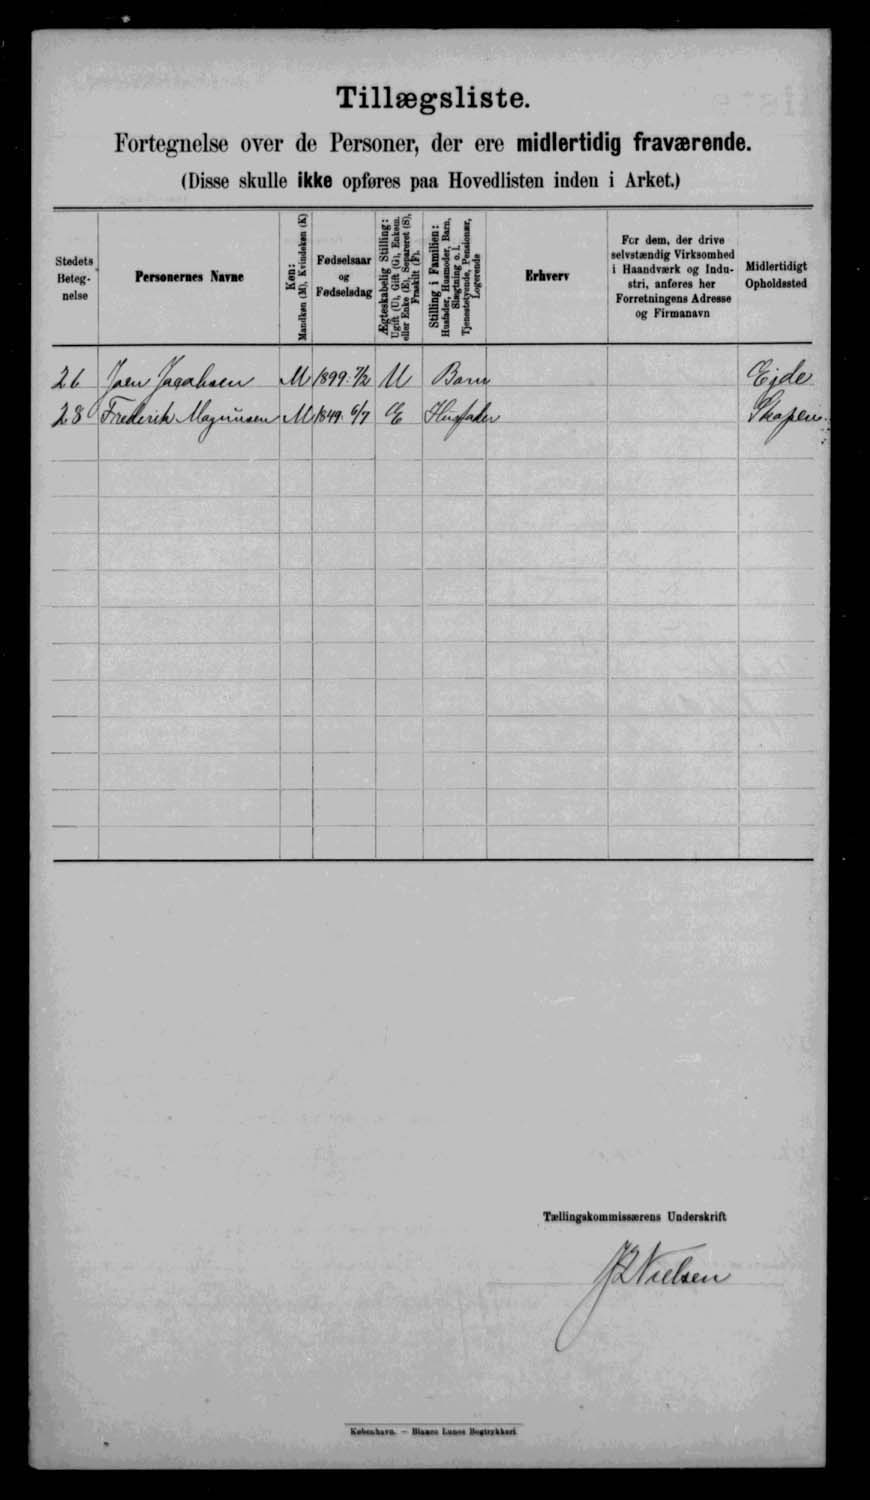 Tillægsliste.
Fortegnelse over de Personer, der ere midlertidig fraværende.
(Disse skulle ikke opføres paa Hovedlisten inden i Arket.)
Stedets Beteg- nelse
Personernes Navne
Køn: Mandkøn (M), Kvindekøn (K)
Fødselsaar og Fødselsdag
Ægteskabelig Stilling: Ugift (U), Gift (G), Enkem. eller Enke (E), Separeret (S), Fraskilt (F).
Stilling i Familien: Husfader, Husmoder, Barn, Slægtning o. l. Tjenestetyende, Pensionær, Logerende
Erhverv
For dem, der drive selvstændig Virksomhed i Haandværk og Indu- stri, anføres her Forretningens Adresse og Firmanavn
Midlertidigt Opholdssted
26 Joen Jacobsen M 1899. 7/2 U Barn Ejde
28 Frederik Magnusen M 1849. 6/7 E Husfader Skapen.
Tællingskommissærens Underskrift
Nielsen
København. — Bianco Lunos Bogtrykkeri